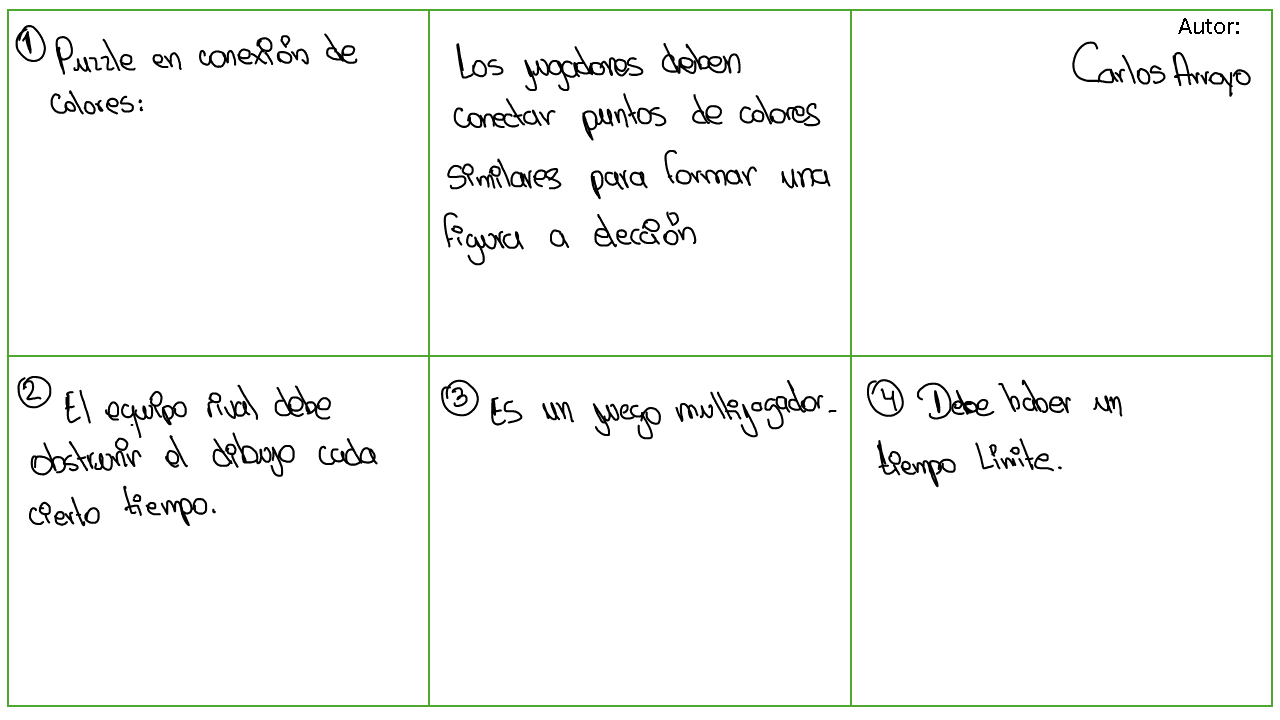 ① Puzzle en conexión de
colores:
Los jugadores deben
conectar puntos de colores
similares para formar una
figura a elección
Autor:
Carlos Arroyo
② El equipo rival debe
obstruir el dibujo cada
cierto tiempo.
③ Es un juego multijogador.
④ Debe haber un
tiempo Limite.